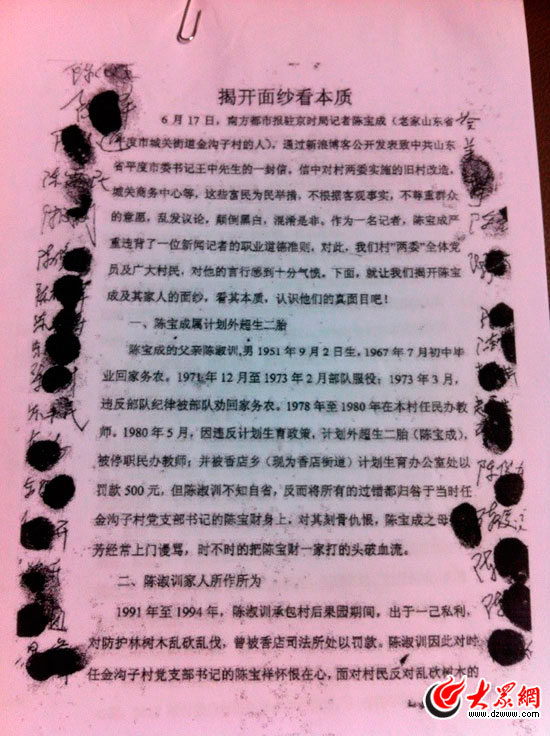 揭开面纱看本质
6月17日，南方都市报驻京时局记者陈宝成（老家山东省
平度市城关街道金沟子村的人），通过新浪博客公开发表致中共山东
省平度市委书记王中先生的一封信，信中对村两委实施的旧村改造，
城关商务中心等，这些富民为民举措，不根据客观事实，不尊重群众
的意愿，乱发议论，颠倒黑白，混淆是非。作为一名记者，陈宝成严
重违背了一位新闻记者的职业道德准则，对此，我们村“两委”全体党
员及广大村民，对他的言行感到十分气愤。下面，就让我们揭开陈宝
成及其家人的面纱，看其本质，认识他们的真面目吧！
一、陈宝成属计划外超生二胎
陈宝成的父亲陈淑训,男1951年9月2日生，1967年7月初中毕
业回家务农。1971年12月至1973年2月部队服役；1973年3月，
违反部队纪律被部队劝回家务农。1978年至1980年在本村任民办教
师。1980年5月，因违反计划生育政策，计划外超生二胎（陈宝成），
被停职民办教师；并被香店乡（现为香店街道）计划生育办公室处以
罚款500元，但陈淑训不知自省，反而将所有的过错都归咎于当时任
金沟子村党支部书记的陈宝财身上，对其刻骨仇恨，陈宝成之母
芳经常上门谩骂，时不时的把陈宝财一家打的头破血流。
二、陈淑训家人所作所为
1991年至1994年，陈淑训承包村后果园期间，出于一己私利，
对防护林树木乱砍乱伐，曾被香店司法所处以罚款。陈淑训因此对时
任金沟子村党支部书记的陈宝祥怀恨在心，面对村民反对乱砍树木的
大众网
www.dzwww.com